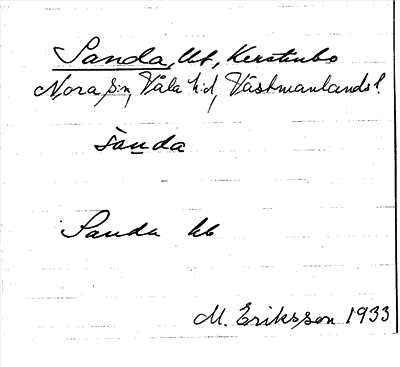 Sanda, Ut, Kerstinbo
Nora sn, Våla hd, Västmanlands l.
sanda
Sanda ut
M. Eriksson 1933